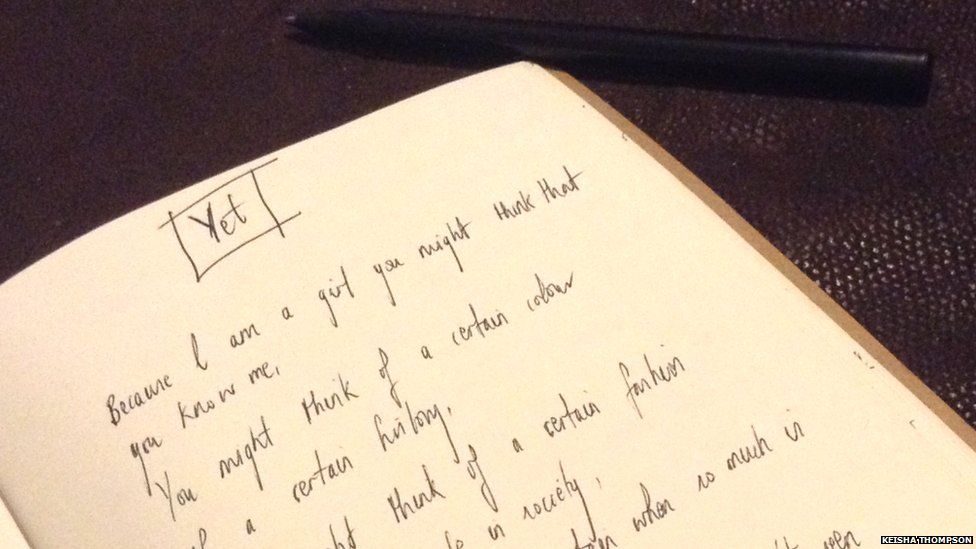 Yet
Because I am a girl you might think that
you know me,
You might think of a certain colour
a certain history,
think of a certain fashion
in society,
when so much is
KEISHA THOMPSON